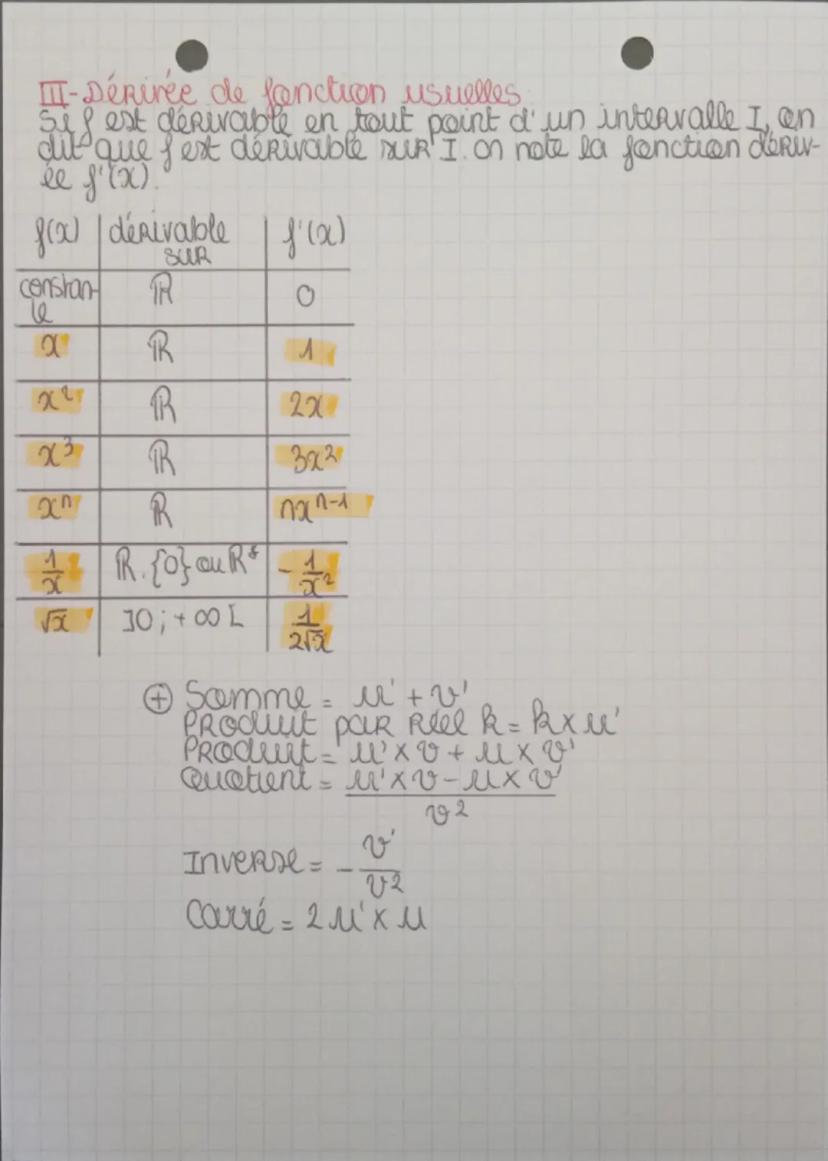 III-Dérivée de fonction usuelles
Si f est dérivable en tout point d'un intervalle I, on
dit que f est dérivable sur I. On note la fonction dériv-
ée f'(x).
f(x) | dérivable sur | f'(x)
constante | ℝ | 0
x | ℝ | 1
x² | ℝ | 2x
x³ | ℝ | 3x²
xⁿ | ℝ | nxⁿ⁻¹
1/x | ℝ.{0} ou ℝ* | -1/x²
√x | ]0 ; +∞[ | 1/2√x
⊕ Somme = u' + v'
Produit par réel k = k × u'
Produit = u' × v + u × v'
Quotient = (u' × v - u × v')/v²
Inverse = - v'/v²
Carré = 2u' × u